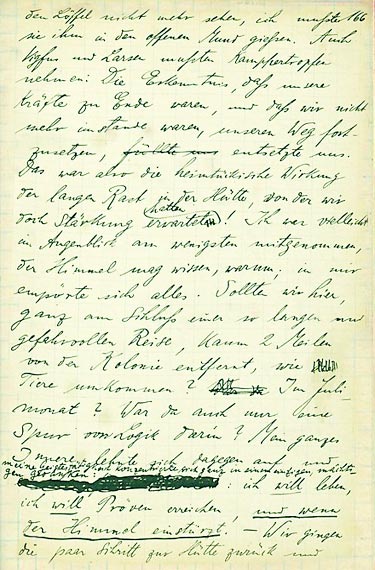 den Löffel nicht mehr sehen, ich mußte 166
sie ihm in den offenen Mund gießen. Auch
und Larsen mußten Kampfertropfen
nehmen. Die Erkenntnis, daß unsere
Kräfte zu Ende waren, und daß wir nicht
mehr imstande waren, unseren Weg fort-
zusetzen, füllte uns entsetzte uns.
Das war also die heimtückische Wirkung
der langen Rast in der Hütte, von der wir
hatten
doch Stärkung erwartet! Ich war vielleicht
im Augenblick am wenigsten mitgenommen,
der Himmel mag wissen, warum; in mir
empörte sich alles. Sollten wir hier,
ganz am Schluß einer so langen und
gefahrvollen Reise, kaum 2 Meilen
von der Kolonie entfernt, wie
Tiere umkommen? Im Juli
monat? War da auch nur eine
Spur von Logik darin? Mein ganzes
Innere lehnte sich dagegen auf und
meine Geisteskraft konzentrierte sich ganz in einem einzigen, mächti-
gen Gedanken: ich will leben,
ich will Pröven erreichen und wenn
der Himmel einstürzt! – Wir gingen
die paar Schritt zur Hütte zurück und